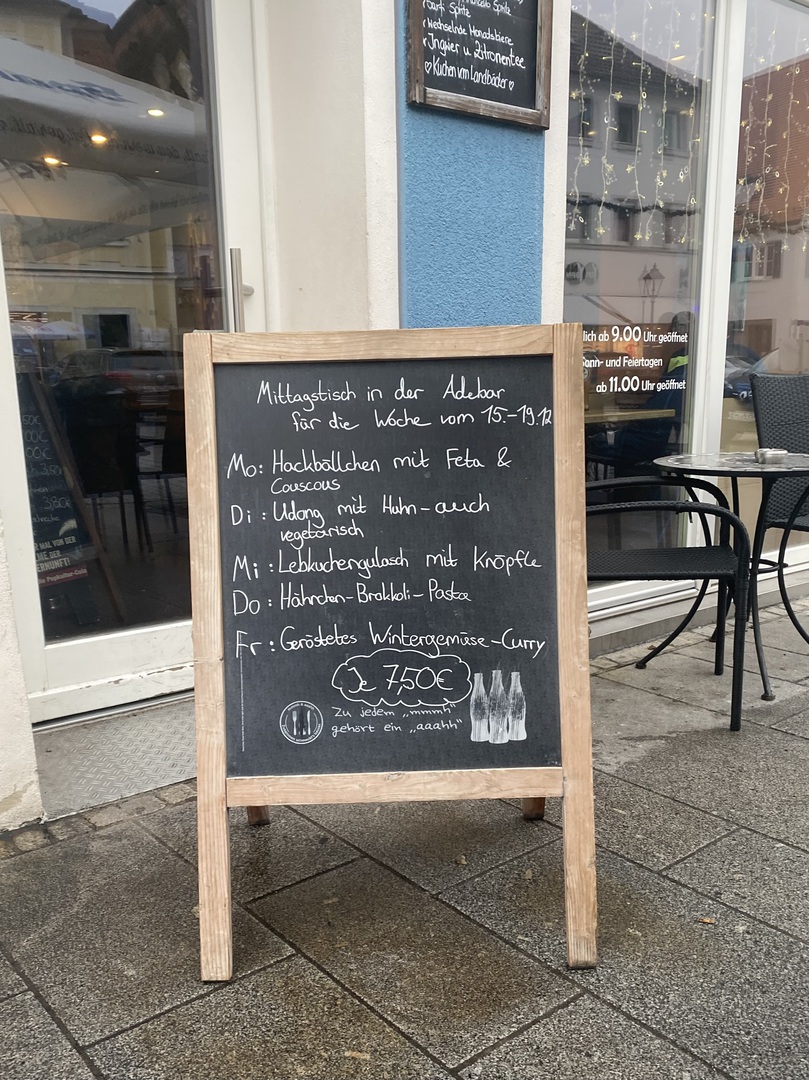 Sarti Spritz
wechselnde Monatsbiere
Ingwer u. Zitronentee
♡ Kuchen vom Landbäcker ♡
lich ab 9.00 Uhr geöffnet
Sonn- und Feiertagen
ab 11.00 Uhr geöffnet
Mittagstisch in der Adebar
für die Woche vom 15.-19.12
Mo: Hackbällchen mit Feta &
Couscous
Di: Udong mit Huhn-auch
vegetarisch
Mi: Lebkuchengulasch mit Knöpfle
Do: Hähnchen-Brokkoli-Pasta
Fr: Geröstetes Wintergemüse-Curry
Je 7,50€
Zu jedem „mmmh"
gehört ein „aaahh"